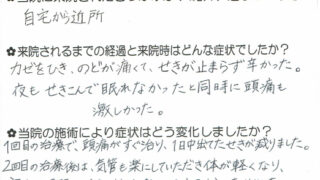 自宅から近所
✿来院されるまでの経過と来院時はどんな症状でしたか？
カゼをひき、のどが痛くて、せきが止まらず辛かった。
夜もせきこんで眠れなかったと同時に頭痛も
激しかった。
✿当院の施術により症状はどう変化しましたか？
1回目の治療で、頭痛がすぐ治り、1日中出てたせきが減りました。
2回目の治療後は、気管も楽にしていただき体が軽くなり、